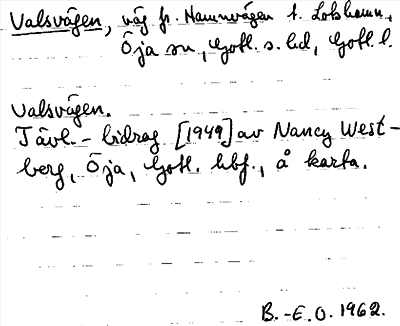 Valsvägen, väg fr. Hamnvägen t. Lotshamn,
Öja sn, Gotl. s. hd, Gotl. l.
Valsvägen.
Tävl.-bidrag [1949] av Nancy West-
berg, Öja, Gotl. hbf., å karta.
B.-E. O. 1962.